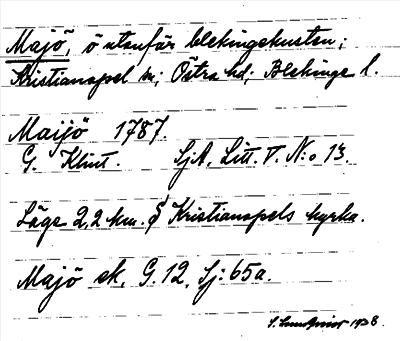 Majö, ö utanför blekingekusten;
Kristianopel sn; Östra hd; Blekinge l.
Maijö 1787.
G. Klint. SjA, Litt. V. N:o 13.
Läge 2,2 km. S Kristianopels kyrka.
Majö ek. G. 12, Sj: 65a.
S. Lundqvist 1938.